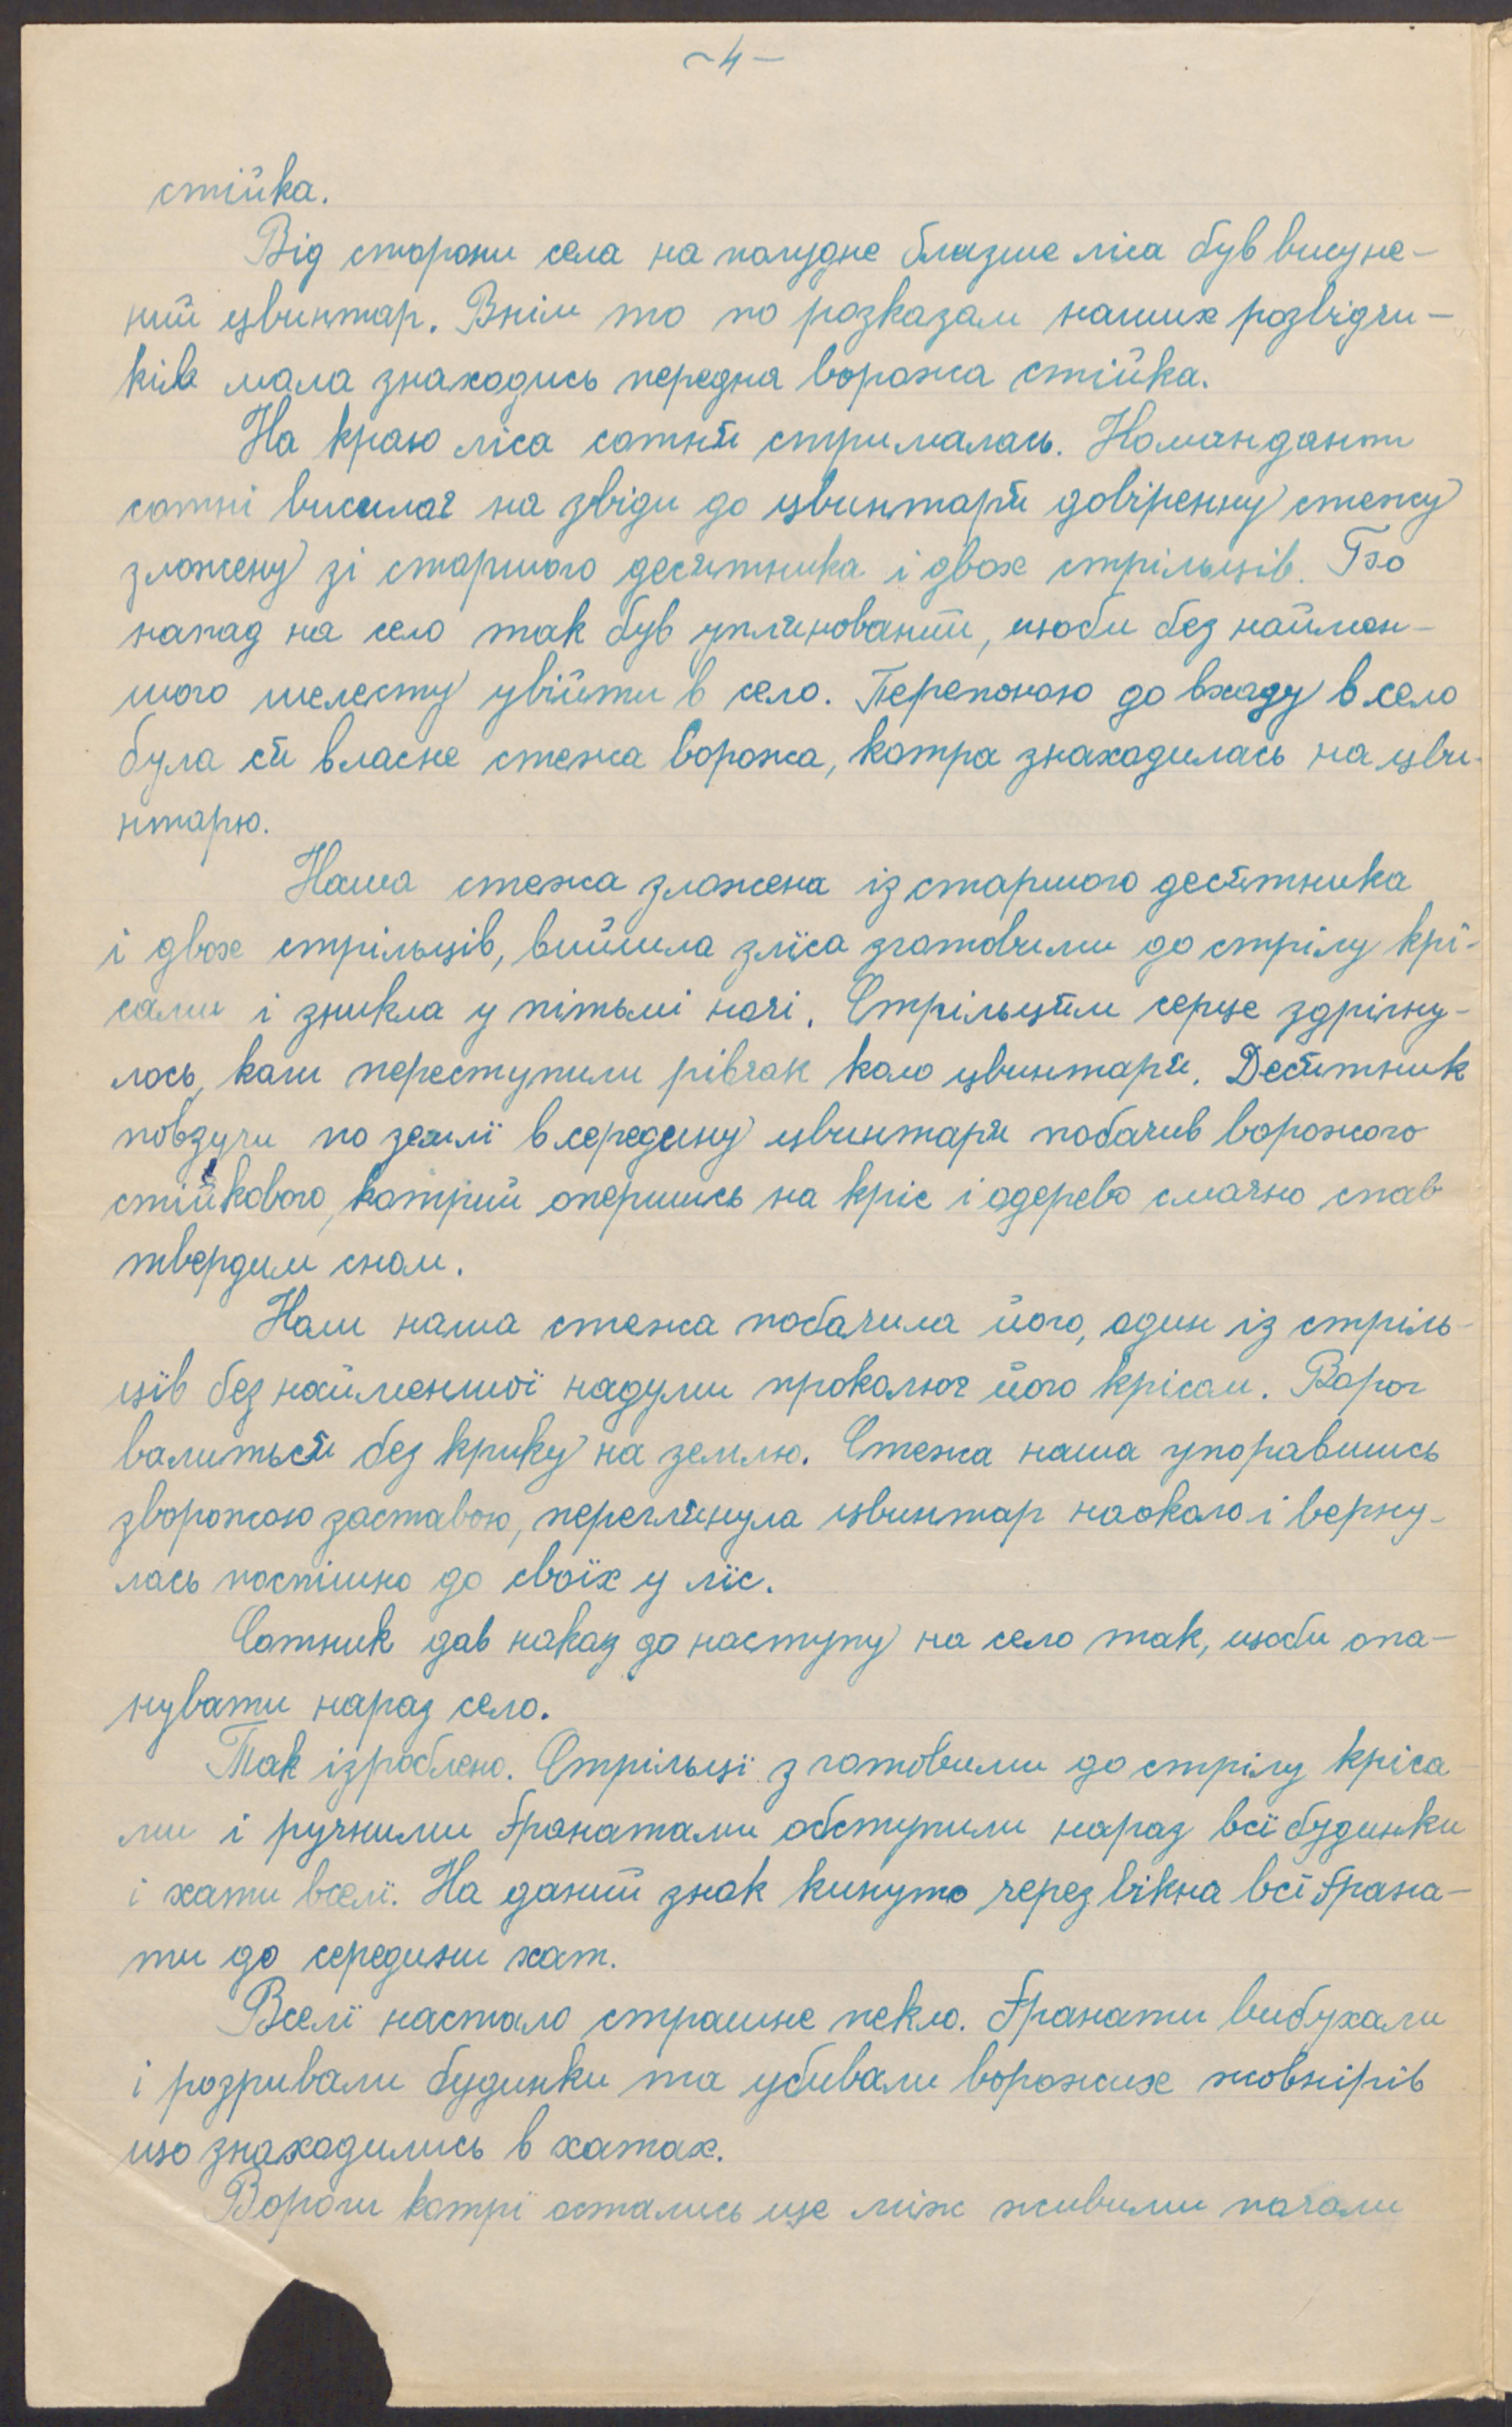 -4-
стійка.
Від сторони села на полудне близше ліса був висуне-
ний цвинтар. Внім то по розказам наших розвідчи-
ків мала знаходись передна ворожа стійка.
На краю ліса сотня стрималась. Командант
сотні висилає на звіди до цвинтаря довіренну стежу
зложену зі старшого десятника і двох стрільців. Бо
напад на село так був уплянований, щоби без наймен-
шого шелесту увійти в село. Перепоною до входу в село
була ся власне стежа ворожа, котра знаходилась на цви-
нтарю.
Наша стежа зложена із старшого десятника
і двох стрільців, вийшла зліса зготовими до стрілу крі-
сами і зникла у пітьмі ночі. Стрільцям серце здрігну-
лось, коли переступили рівчак коло цвинтаря. Десятник
повзучи по землї в середину цвинтаря побачив ворожого
стійкового, котрий опершись на кріс і одерево смачно спав
твердим сном.
Коли наша стежа побачила його, один із стріль-
ців без найменшої надуми проколює його крісом. Ворог
валиться без крику на землю. Стежа наша упоравшись
зворожою заставою, переглянула цвинтар наоколо і верну-
лась поспішно до своїх у ліс.
Сотник дав наказ до наступу на село так, щоби опа-
нувати нараз село.
Так ізроблено. Стрільцї з готовими до стрілу кріса-
ми і ручними ґранатами обступили нараз всї будинки
і хати вселї. На даний знак кинуто через вікна всї ґрана-
ти до середини хат.
Вселї настало страшне пекло. Ґранати вибухали
і розривали будинки та убивали ворожих жовнірів
що знаходились в хатах.
Вороги котрї остались ще між живими почали